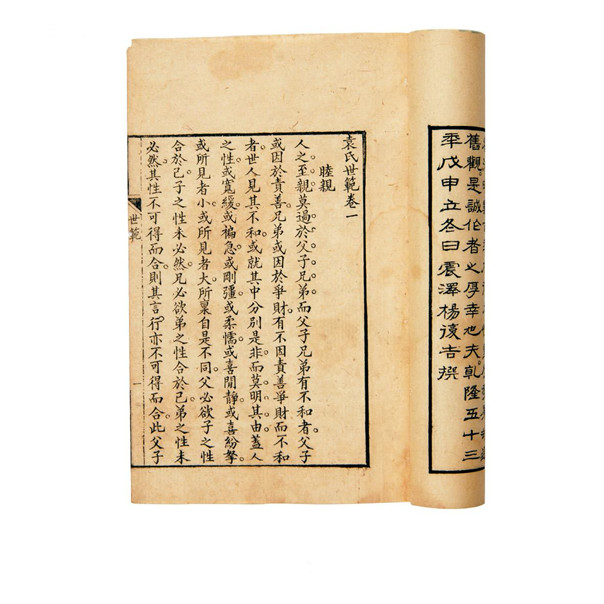 舊觀是誠作者之厚幸也夫乾隆五十三
年戊申立冬日震澤楊復吉撰
袁氏世範卷一
睦親
人之至親。莫過於父子兄弟。而父子兄弟有不和者。父子
或因於責善。兄弟或因於爭財。有不因責善爭財而不和
者。世人見其不和。或就其中分別是非。而莫明其由。蓋人
之性。或寬緩。或褊急。或剛彊。或柔懦。或喜閒靜。或喜紛拏。
或所見者小。或所見者大。所稟自是不同。父必欲子之性
合於己。子之性未必然。兄必欲弟之性合於己。弟之性未
必然。其性不可得而合。則其言行亦不可得而合。此父子
世範
一